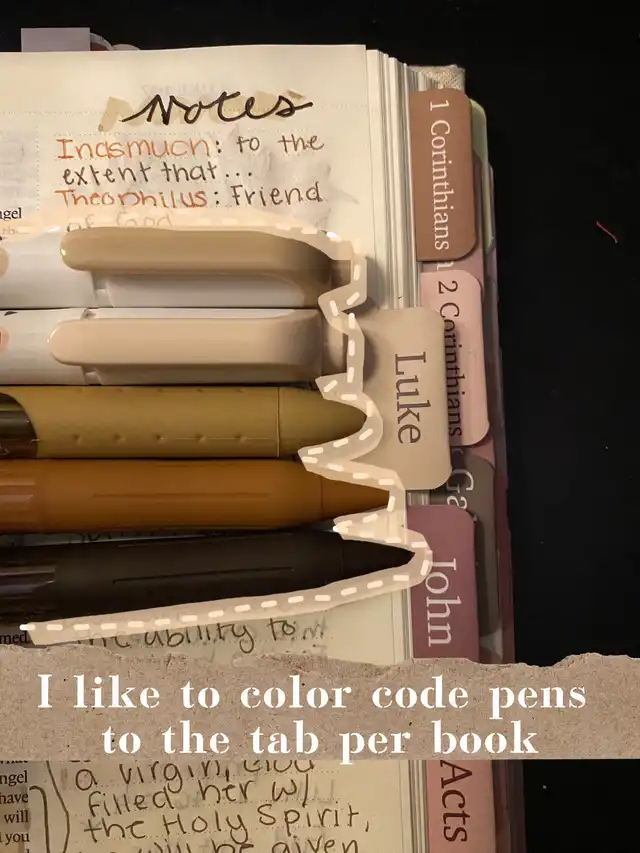 Notes
Inasmuch: to the
extent that...
Theophilus: Friend
of God
ngel
1 Corinthians
2 Corinthians
Luke
Ga
John
med
the ability to
I like to color code pens
to the tab per book
Acts
a virgin, God
filled her w/
the Holy Spirit,
will be given
ngel
have
will
you